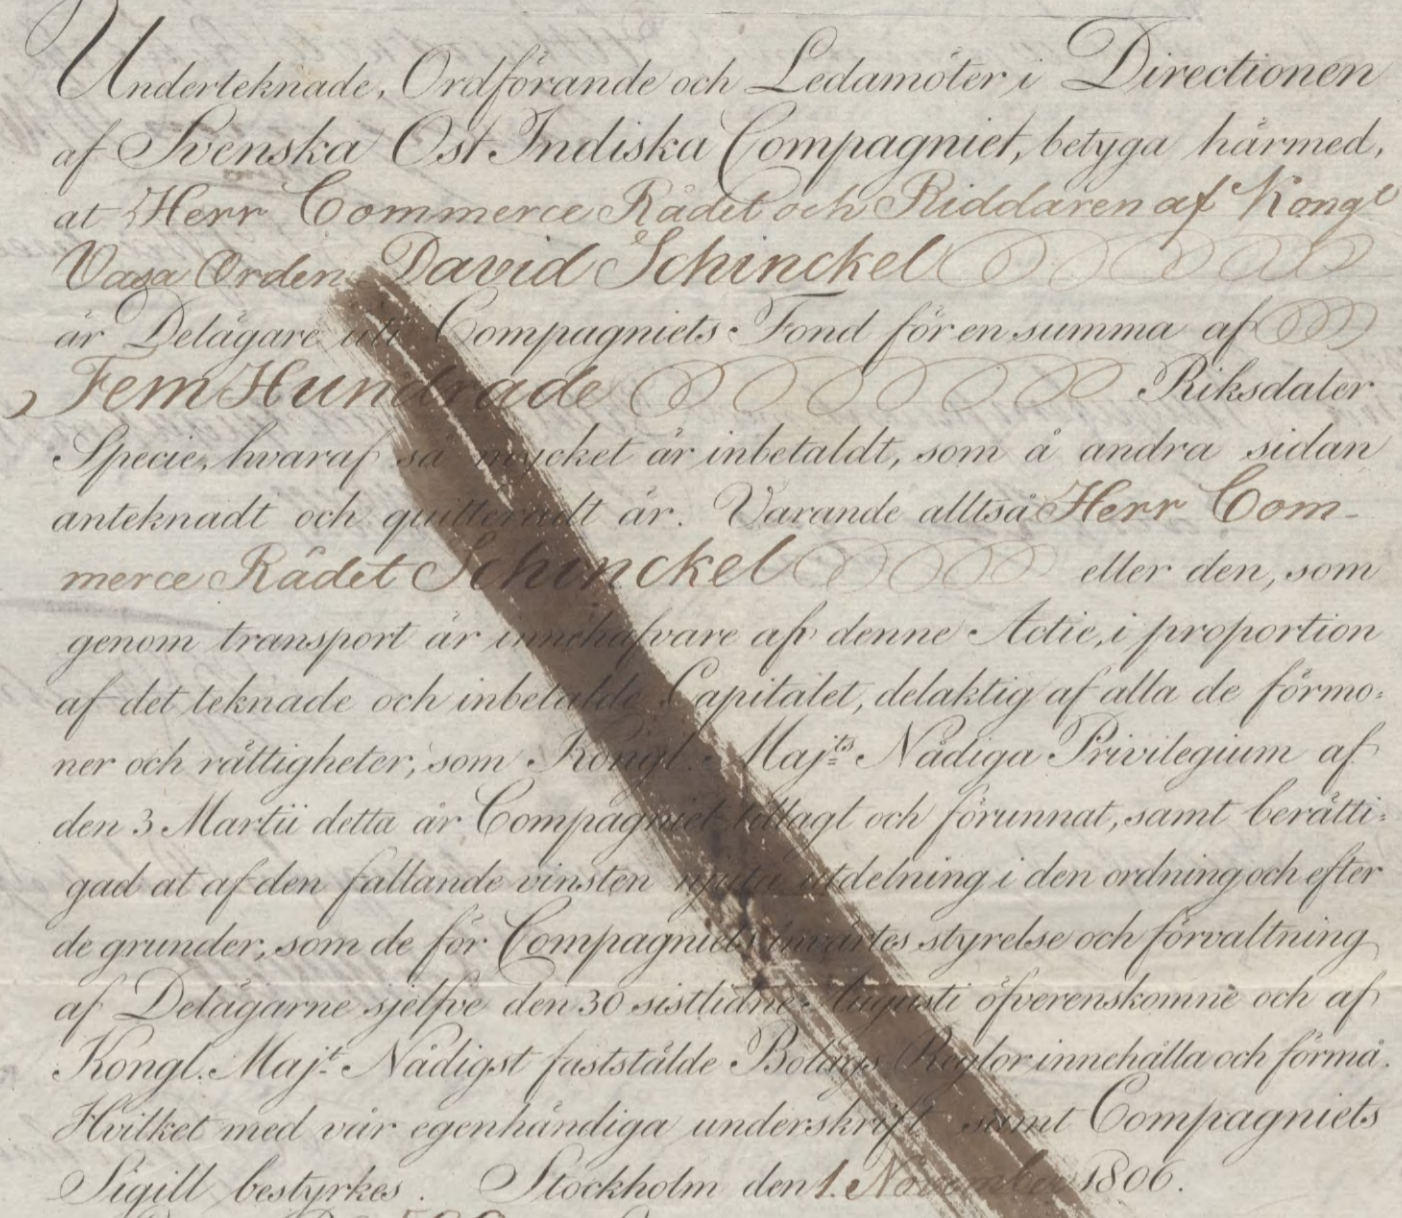 Underteknade, Ordförande och Ledamöter i Directionen
af Svenska Ost Indiska Compagniet, betyga härmed,
at Herr Commerce Rådet och Riddaren af Kongl
Vasa Orden David Schinckel
är Delägare uti Compagniets Fond för en summa af
Fem Hundrade Riksdaler
Specie, hvaraf så mycket är inbetaldt, som å andra sidan
anteknadt och quitteradt är. Varande alltså Herr Com-
merce Rådet Schinckel eller den, som
genom transport är innehafvare af denne Actie, i proportion
af det teknade och inbetalde Capitalet, delaktig af alla de förmo=
ner och rättigheter, som Kongl. Maj:ts Nådiga Privilegium af
den 3 Martii detta år Compagniet tillagt och förunnat, samt berätti=
gad at af den fallande vinsten njuta utdelning i den ordning och efter
de grunder, som de för Compagniets styrelse och förvaltning
af Delägarne sjelfve den 30 sistlidne Augusti öfverenskomne och af
Kongl. Maj:t Nådigst fastställde Bolags Reglor innehålla och förmå.
Hvilket med vår egenhändiga underskrift samt Compagniets
Sigill bestyrkes. Stockholm den 1. November 1806.